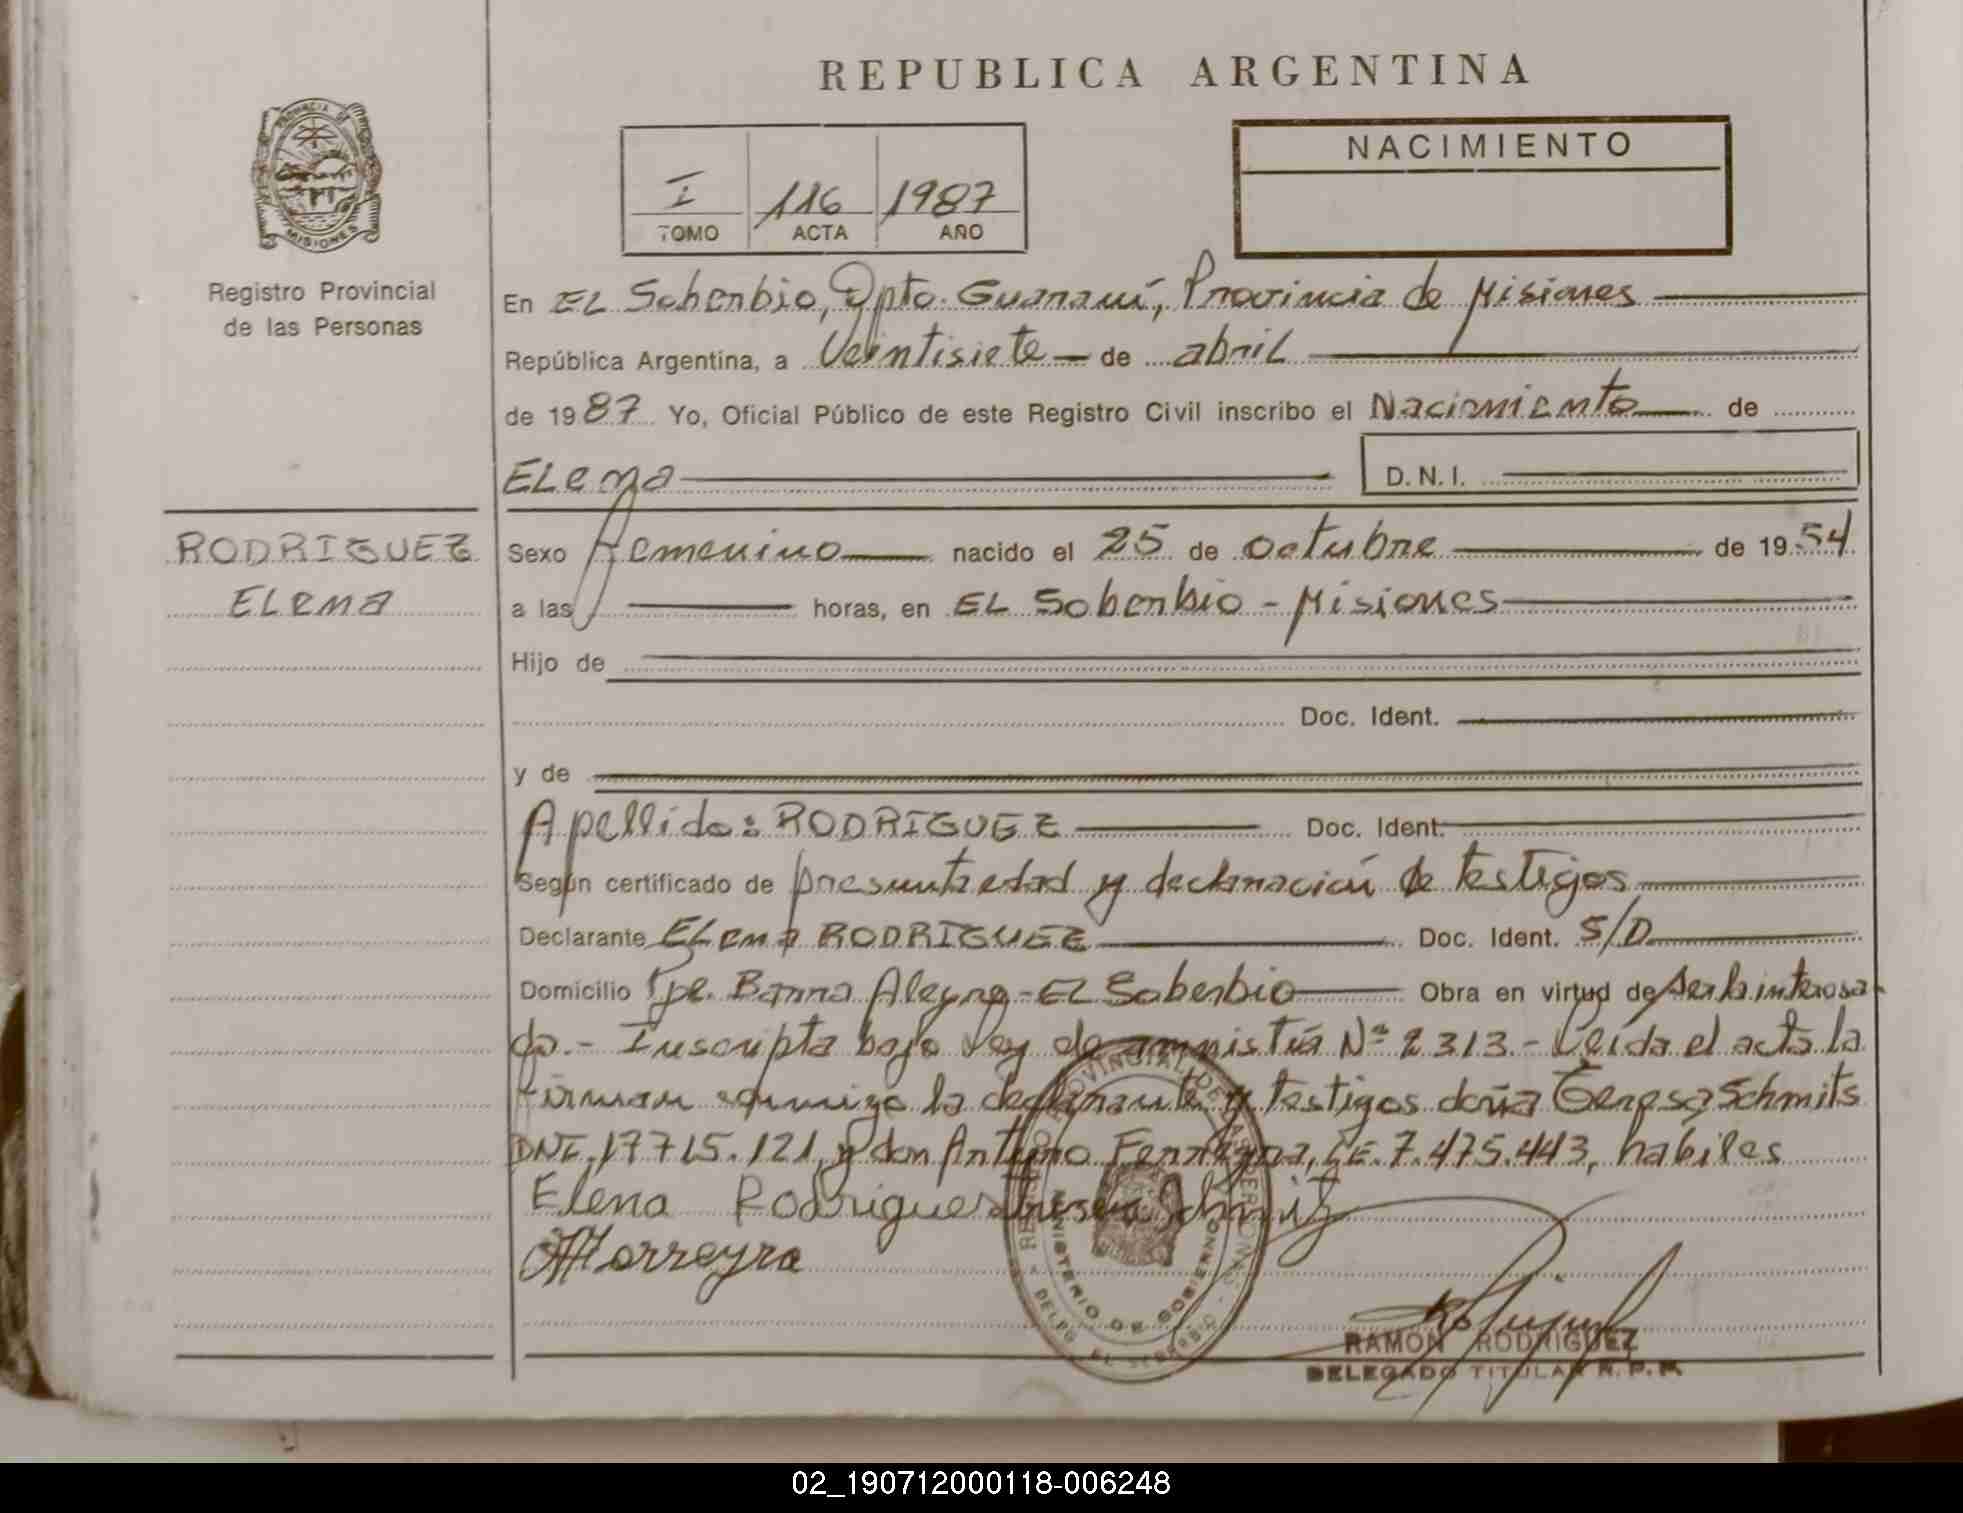 REPUBLICA ARGENTINA
PROVINCIA DE
MISIONES
Registro Provincial
de las Personas
I 116 1987
TOMO ACTA AÑO
NACIMIENTO
En EL Soberbio, Dpto. Guaraní, Provincia de Misiones
República Argentina, a Veintisiete de abril
de 1987 Yo, Oficial Público de este Registro Civil inscribo el Nacimiento de
Elena D.N.I.
RODRIGUEZ
Elena
Sexo femenino nacido el 25 de octubre de 1954
a las horas, en EL Soberbio - Misiones
Hijo de
Doc. Ident.
y de
Apellido: RODRIGUEZ Doc. Ident.
Según certificado de presunta edad y declaración de testigos
Declarante Elena RODRIGUEZ Doc. Ident. S/D
Domicilio Pje. Barra Alegre - El Soberbio Obra en virtud de ser la interesa
da.- Inscripta bajo Ley de amnistía Nº 2313.- Leída el acta la
firman conmigo la declarante y testigos doña Teresa Schmits
DNI. 17715.121, y don Antonio Ferreyra, LE. 7.475.443, habiles
Elena Rodriguez Teresa Schmitz
RAMON RODRIGUEZ
DELEGADO TITULAR R. P. P.
MINISTERIO DE GOBIERNO
02_190712000118-006248